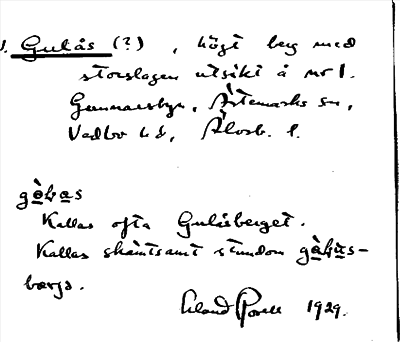 Gulås (?), högt berg med
storslagen utsikt å nr 1.
Gunnarsbyn, Ärtemarks sn,
Vedbo hd, Älvsb. l.
Kallas ofta Gulåsberget.
Kallas skämtsamt stundom
Erland 1929.